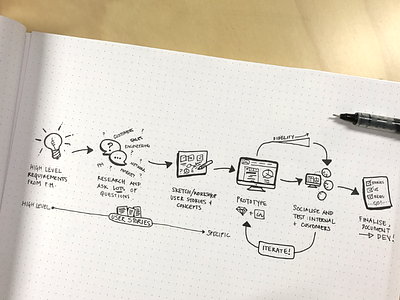 FIDELITY
CUSTOMER
SALES
ENGINEERING
PM
MARKET
HIGH LEVEL
REQUIREMENTS
FROM P.M.
RESEARCH AND
ASK LOTS OF
QUESTIONS
SKETCH/WORKSHOP
USER STORIES +
CONCEPTS
PROTOTYPE
SOCIALISE AND
TEST: INTERNAL
+ CUSTOMERS
FINALISE,
DOCUMENT
DEV!
HIGH LEVEL
USER STORIES
SPECIFIC
ITERATE!